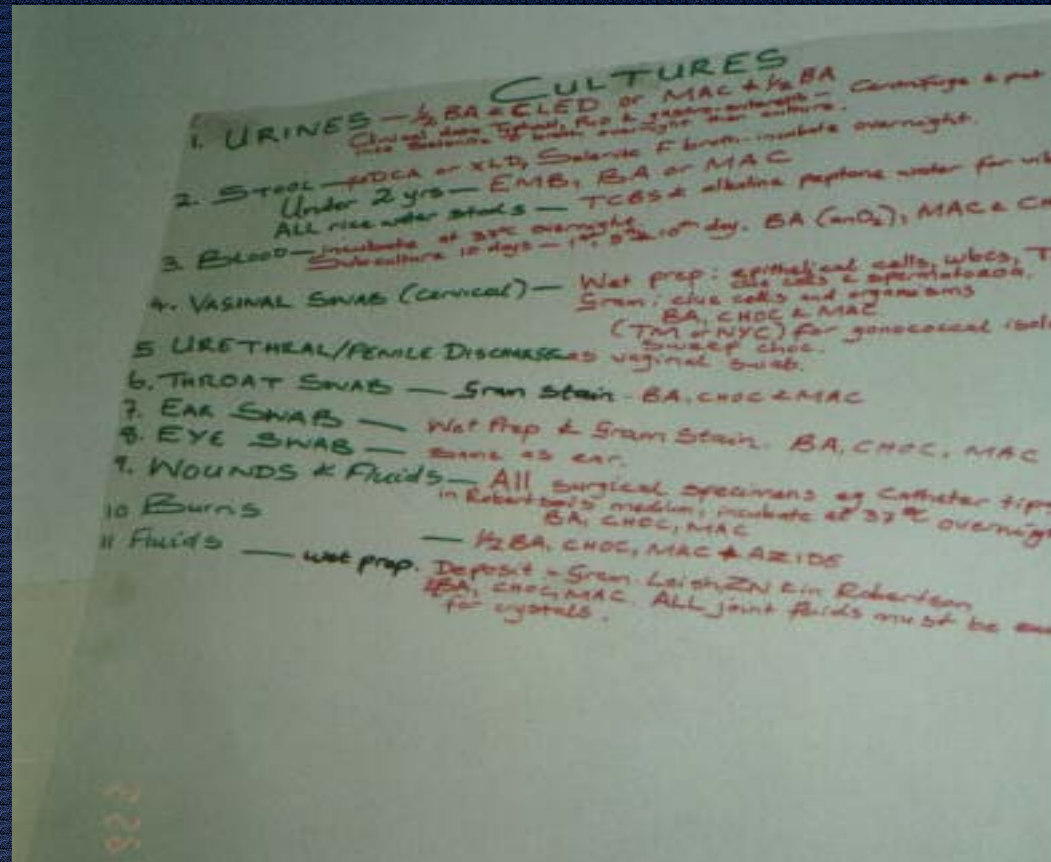 CULTURES
1. URINES — ½ BA & CLED or MAC & ½ BA
Clinical data: Typhoid, PUO & gastroenteritis — Centrifuge & put
into Selenite F broth overnight then culture.
2. STOOL — DCA or XLD, Selenite F broth - incubate overnight.
Under 2 yrs — EMB, BA or MAC
ALL rice water stools — TCBS & alkaline peptone water for
3. BLOOD — incubate at 37°C overnight
Subculture 10 days — 1st, 5th & 10th day. BA (anO₂), MAC &
4. VAGINAL SWAB (cervical) — Wet prep: epithelical cells, wbcs, T
clue cells & spermatozoa.
Gram: clue cells and organisms
BA, CHOC & MAC
(TM or NYC) for gonococcal
sweep choc.
5 URETHRAL/PENILE DISCHARGE as vaginal swab.
6. THROAT SWAB — Gram Stain. BA, CHOC & MAC
7. EAR SWAB — Wet Prep & Gram Stain. BA, CHOC, MAC
8. EYE SWAB — same as ear.
9. WOUNDS & Fluids — All surgical specimens eg Catheter tips
in Robertson's medium, incubate at 37°C
BA, CHOC, MAC
10 Burns — ½ BA, CHOC, MAC & AZIDE
11 Fluids — wet prep. Deposit - Gram. Leish, ZN & in Robertson
BA, CHOC, MAC. ALL joint fluids must be
for crystals.